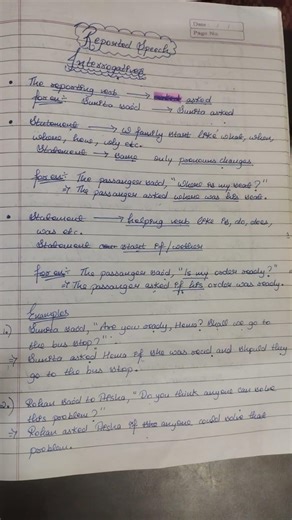 Date
Page No.
Reported Speech
Interrogative
• The reporting verb → asked
for ex:- Sunita said → Sunita asked
• Statement → W family start like what, when,
where, how, why etc.
Statement → same only pronouns changes.
for ex:- The passanger said, "Where is my seat?"
→ The passanger asked where was his seat.
• Statement → helping verb like is, do, does,
was etc.
Statement start if/wether
for ex:- The passanger said, "Is my order ready?"
→ The passanger asked if his order was ready.
Examples
1.) Sunita said, "Are you ready, Hema? Shall we go to
the bus stop?".
⇒ Sunita asked Hema if she was ready and should they
go to the bus stop.
2.) Rohan said to Alisha, "Do you think anyone can solve
this problem?"
⇒ Rohan asked Alisha if anyone could solve that
problem.